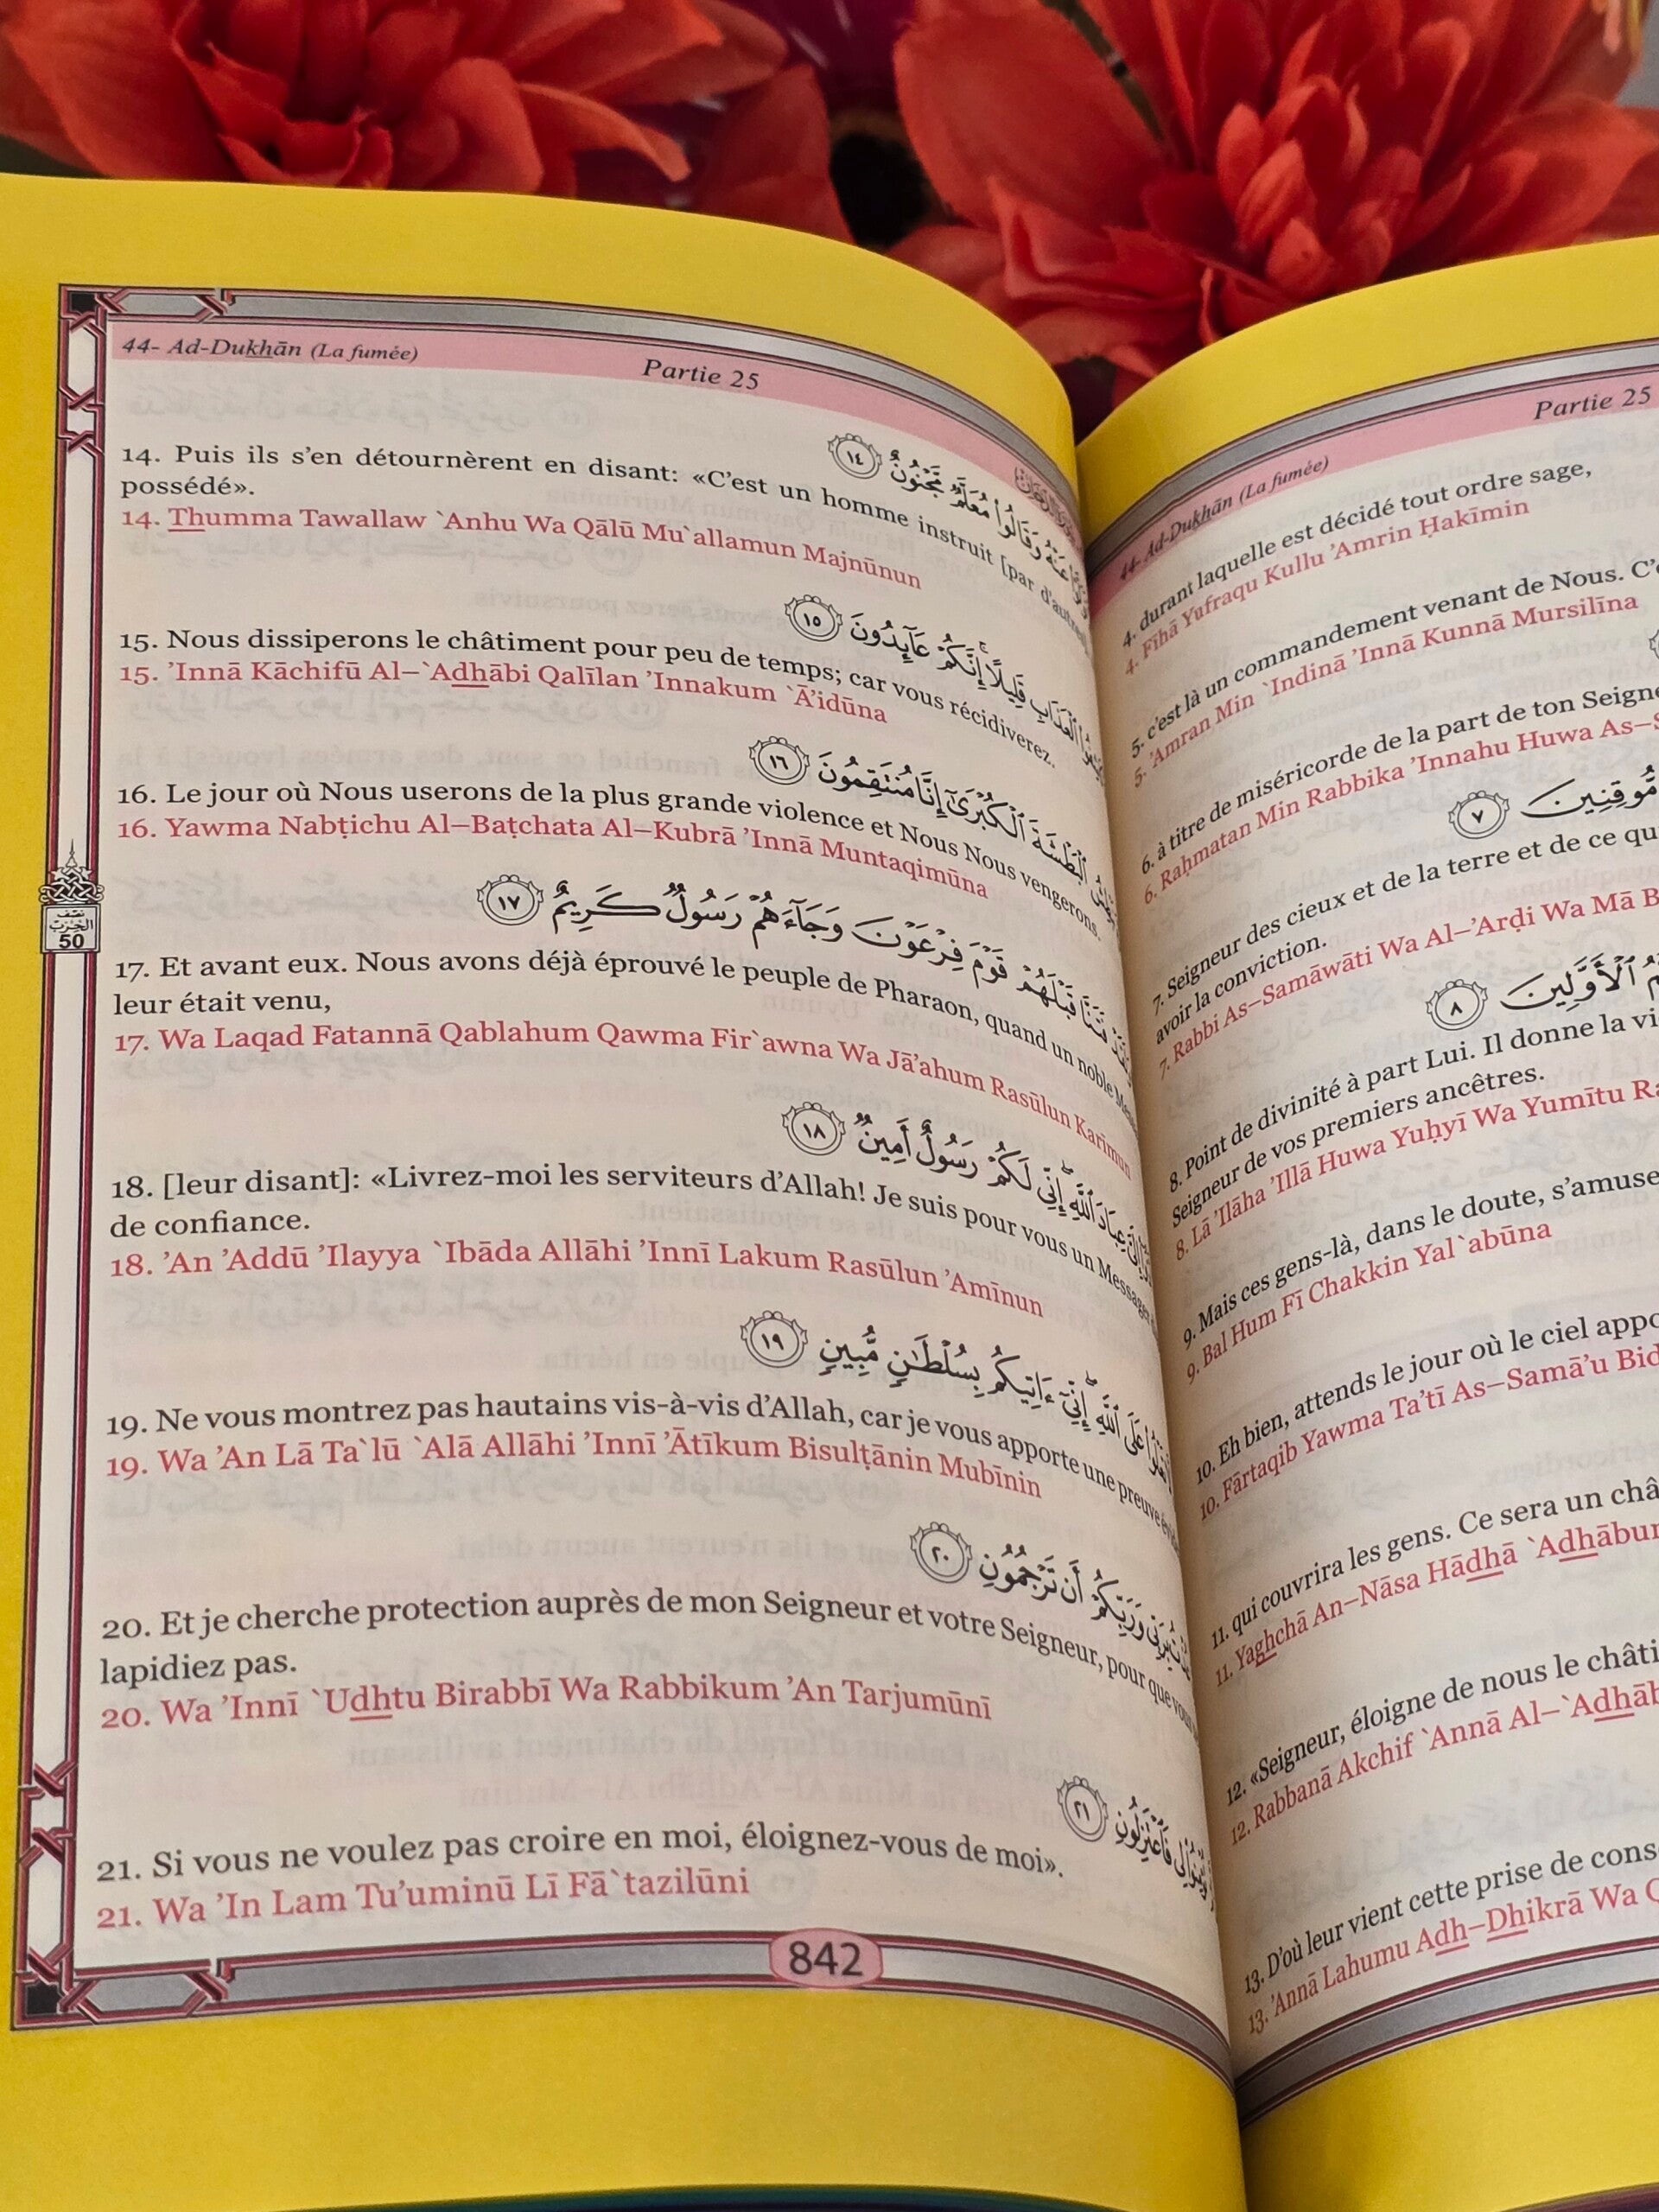 44- Ad-Dukhān (La fumée) Partie 25
مُعَلَّمٌ مَّجْنُونٌ ١٤
14. Puis ils s'en détournèrent en disant: «C'est un homme instruit [par d'autres
possédé».
14. Thumma Tawallaw `Anhu Wa Qālū Mu`allamun Majnūnun
قَلِيلًا ۚ إِنَّكُمْ عَآئِدُونَ ١٥
15. Nous dissiperons le châtiment pour peu de temps; car vous récidiverez.
15. ’Innā Kāchifū Al–`Adhābi Qalīlan ’Innakum `Ā’idūna
ٱلْبَطْشَةَ ٱلْكُبْرَىٰٓ إِنَّا مُنتَقِمُونَ ١٦
16. Le jour où Nous userons de la plus grande violence et Nous Nous vengerons.
16. Yawma Nabṭichu Al–Baṭchata Al–Kubrā ’Innā Muntaqimūna
قَبْلَهُمْ قَوْمَ فِرْعَوْنَ وَجَآءَهُمْ رَسُولٌ كَرِيمٌ ١٧
17. Et avant eux. Nous avons déjà éprouvé le peuple de Pharaon, quand un noble
leur était venu,
17. Wa Laqad Fatannā Qablahum Qawma Fir`awna Wa Jā’ahum Rasūlun Karīmun
عِبَادَ ٱللَّهِ ۖ إِنِّى لَكُمْ رَسُولٌ أَمِينٌ ١٨
18. [leur disant]: «Livrez-moi les serviteurs d'Allah! Je suis pour vous un Messager
de confiance.
18. ’An ’Addū ’Ilayya `Ibāda Allāhi ’Innī Lakum Rasūlun ’Amīnun
عَلَى ٱللَّهِ ۖ إِنِّىٓ ءَاتِيكُم بِسُلْطَٰنٍ مُّبِينٍ ١٩
19. Ne vous montrez pas hautains vis-à-vis d'Allah, car je vous apporte une preuve
19. Wa ’An Lā Ta`lū `Alā Allāhi ’Innī ’Ātīkum Bisulṭānin Mubīnin
وَرَبِّكُمْ أَن تَرْجُمُونِ ٢٠
20. Et je cherche protection auprès de mon Seigneur et votre Seigneur, pour que vous
lapidiez pas.
20. Wa ’Innī `Udhtu Birabbī Wa Rabbikum ’An Tarjumūnī
فَٱعْتَزِلُونِ ٢١
21. Si vous ne voulez pas croire en moi, éloignez-vous de moi».
21. Wa ’In Lam Tu’uminū Lī Fā`tazilūni
نصف
الحزب
50
842
44- Ad-Dukhān (La fumée) Partie 25
4. durant laquelle est décidé tout ordre sage,
4. Fīhā Yufraqu Kullu ’Amrin Ḥakīmin
5. c'est là un commandement venant de Nous.
5. ’Amran Min `Indinā ’Innā Kunnā Mursilīna
6. à titre de miséricorde de la part de ton
6. Raḥmatan Min Rabbika ’Innahu Huwa
مُّوقِنِينَ ٧
7. Seigneur des cieux et de la terre et de ce
avoir la conviction.
7. Rabbi As–Samāwāti Wa Al–’Arḍi Wa Mā
ٱلْأَوَّلِينَ ٨
8. Point de divinité à part Lui. Il donne la
Seigneur de vos premiers ancêtres.
8. Lā ’Ilāha ’Illā Huwa Yuḥyī Wa Yumītu
9. Mais ces gens-là, dans le doute,
9. Bal Hum Fī Chakkin Yal`abūna
10. Eh bien, attends le jour où le ciel
10. Fārtaqib Yawma Ta’tī As–Samā’u
11. qui couvrira les gens. Ce sera un
11. Yaghchā An–Nāsa Hādhā
12. «Seigneur, éloigne de nous le
12. Rabbanā Akchif `Annā
13. D'où leur vient cette prise de
13. ’Annā Lahumu Adh–Dhikrā Wa